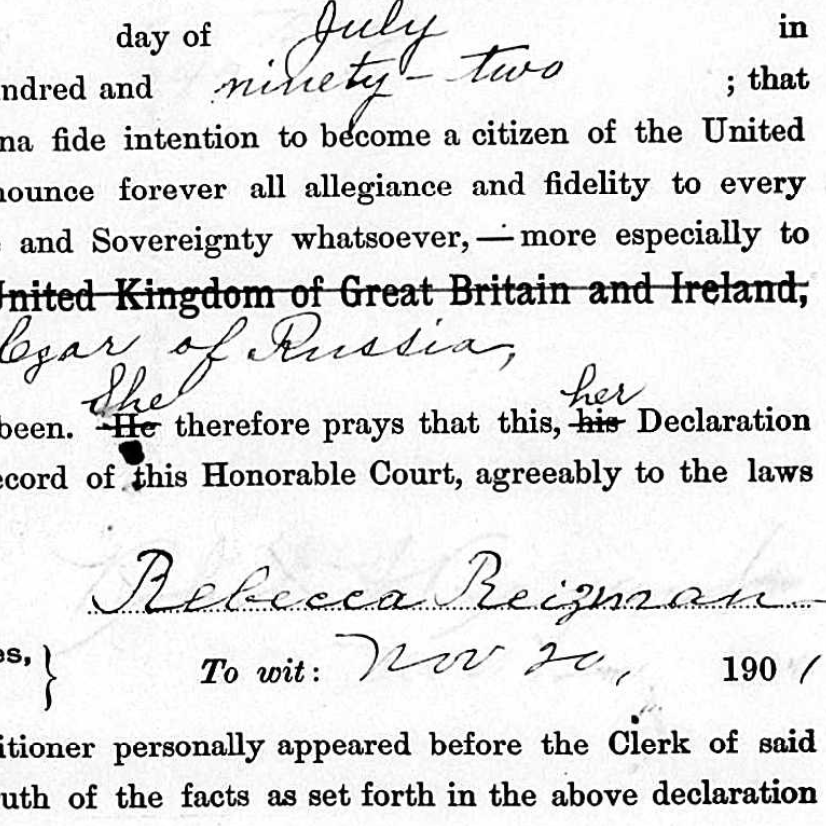 day of July in
ndred and ninety-two ; that
na fide intention to become a citizen of the United
nounce forever all allegiance and fidelity to every
and Sovereignty whatsoever, — more especially to
United Kingdom of Great Britain and Ireland,
Czar of Russia,
She her
been. He therefore prays that this, his Declaration
ecord of this Honorable Court, agreeably to the laws
Rebecca Reizman
es, } To wit: Nov 20, 1901
itioner personally appeared before the Clerk of said
uth of the facts as set forth in the above declaration